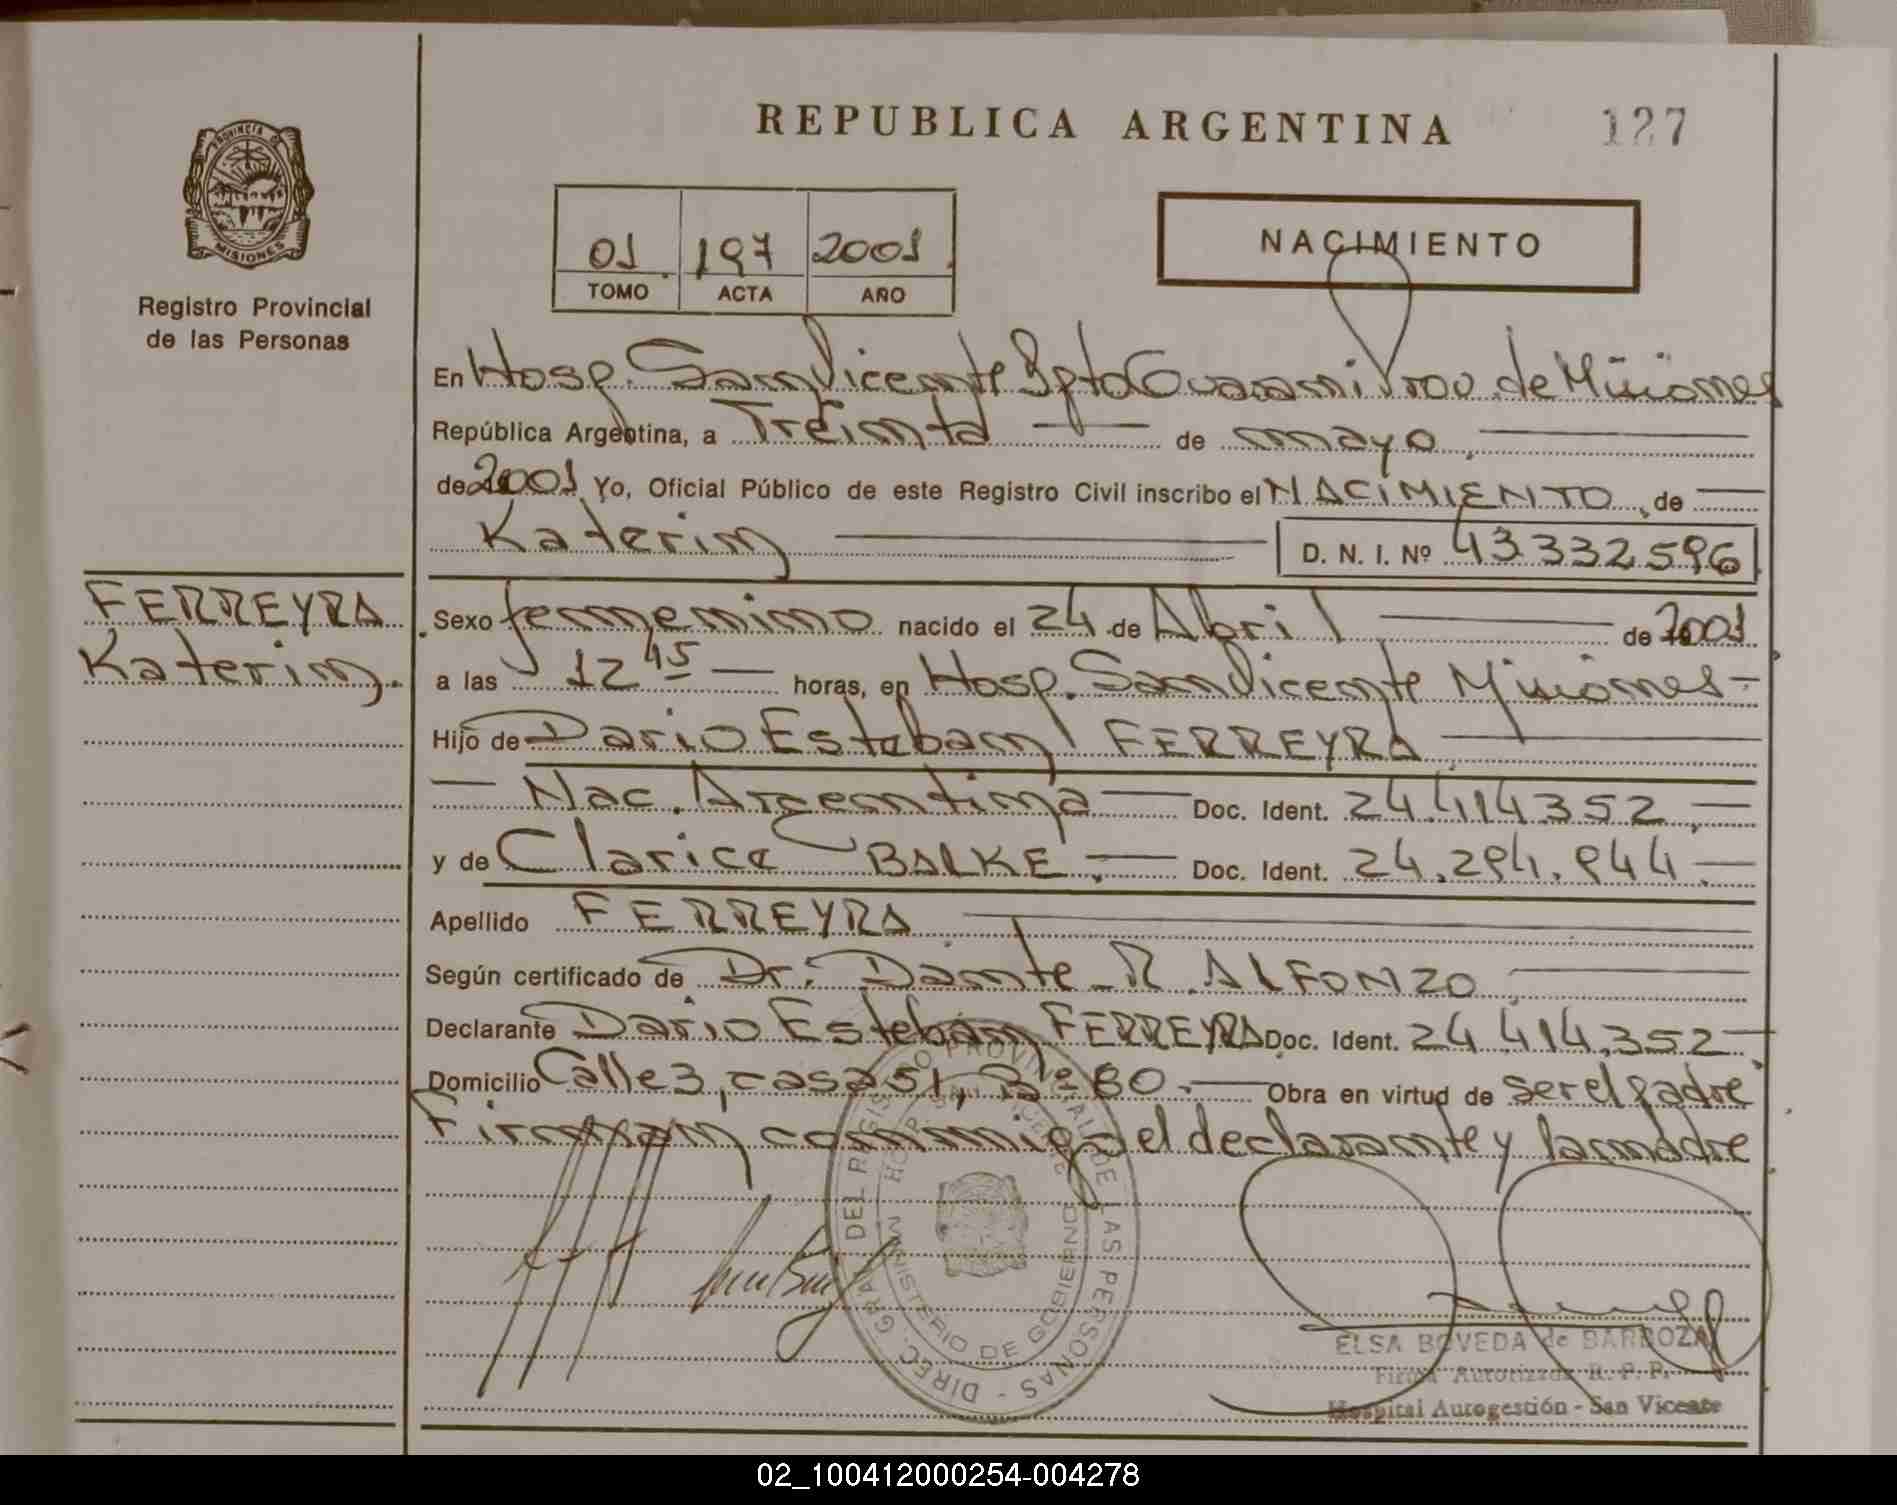 PROVINCIA DE
MISIONES
Registro Provincial
de las Personas
FERREYRA
Katerin.
REPUBLICA ARGENTINA 127
01 197 2001
TOMO ACTA AÑO
NACIMIENTO
En Hosp. San Vicente Dpto Guarani Prov. de Misiones
República Argentina, a Treinta de mayo
de 2001 Yo, Oficial Público de este Registro Civil inscribo el NACIMIENTO, de
Katerin D. N. I. Nº 43332596
Sexo femenino nacido el 24 de Abril de 2001
a las 12 45 horas, en Hosp. San Vicente Misiones-
Hijo de Dario Esteban FERREYRA
Nac. Argentina Doc. Ident. 24.414.352.
y de Clarice BALKE. Doc. Ident. 24.294.944.
Apellido FERREYRA
Según certificado de Dr. Dante R. ALFONZO
Declarante Dario Esteban FERREYRA Doc. Ident. 24.414.352
Domicilio Calle 3, casa 51, Bº 80. Obra en virtud de ser el padre
Firman conmigo el declarante y la madre
DIREC. GRAL. DEL REGISTRO PROVINCIAL DE LAS PERSONAS -
MINISTERIO DE GOBIERNO
ELSA BOVEDA de BARBOZA
Firma Autorizada R. P. P.
Hospital Autogestión - San Vicente
02_100412000254-004278